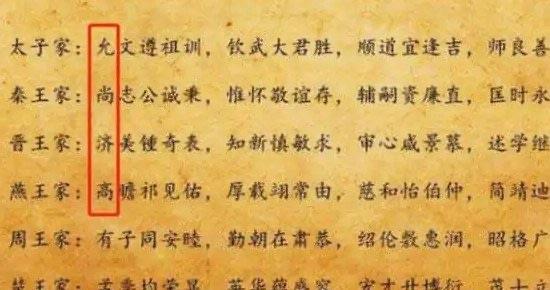 太子家：允文遵祖训，钦武大君胜，顺道宜逢吉，师良善
秦王家：尚志公诚秉，惟怀敬谊存，辅嗣资廉直，匡时永
晋王家：济美锺奇表，知新慎敏求，审心咸景慕，述学继
燕王家：高瞻祁见佑，厚载翊常由，慈和怡伯仲，简靖迪
周王家：有子同安睦，勤朝在肃恭，绍伦敷惠润，昭格广